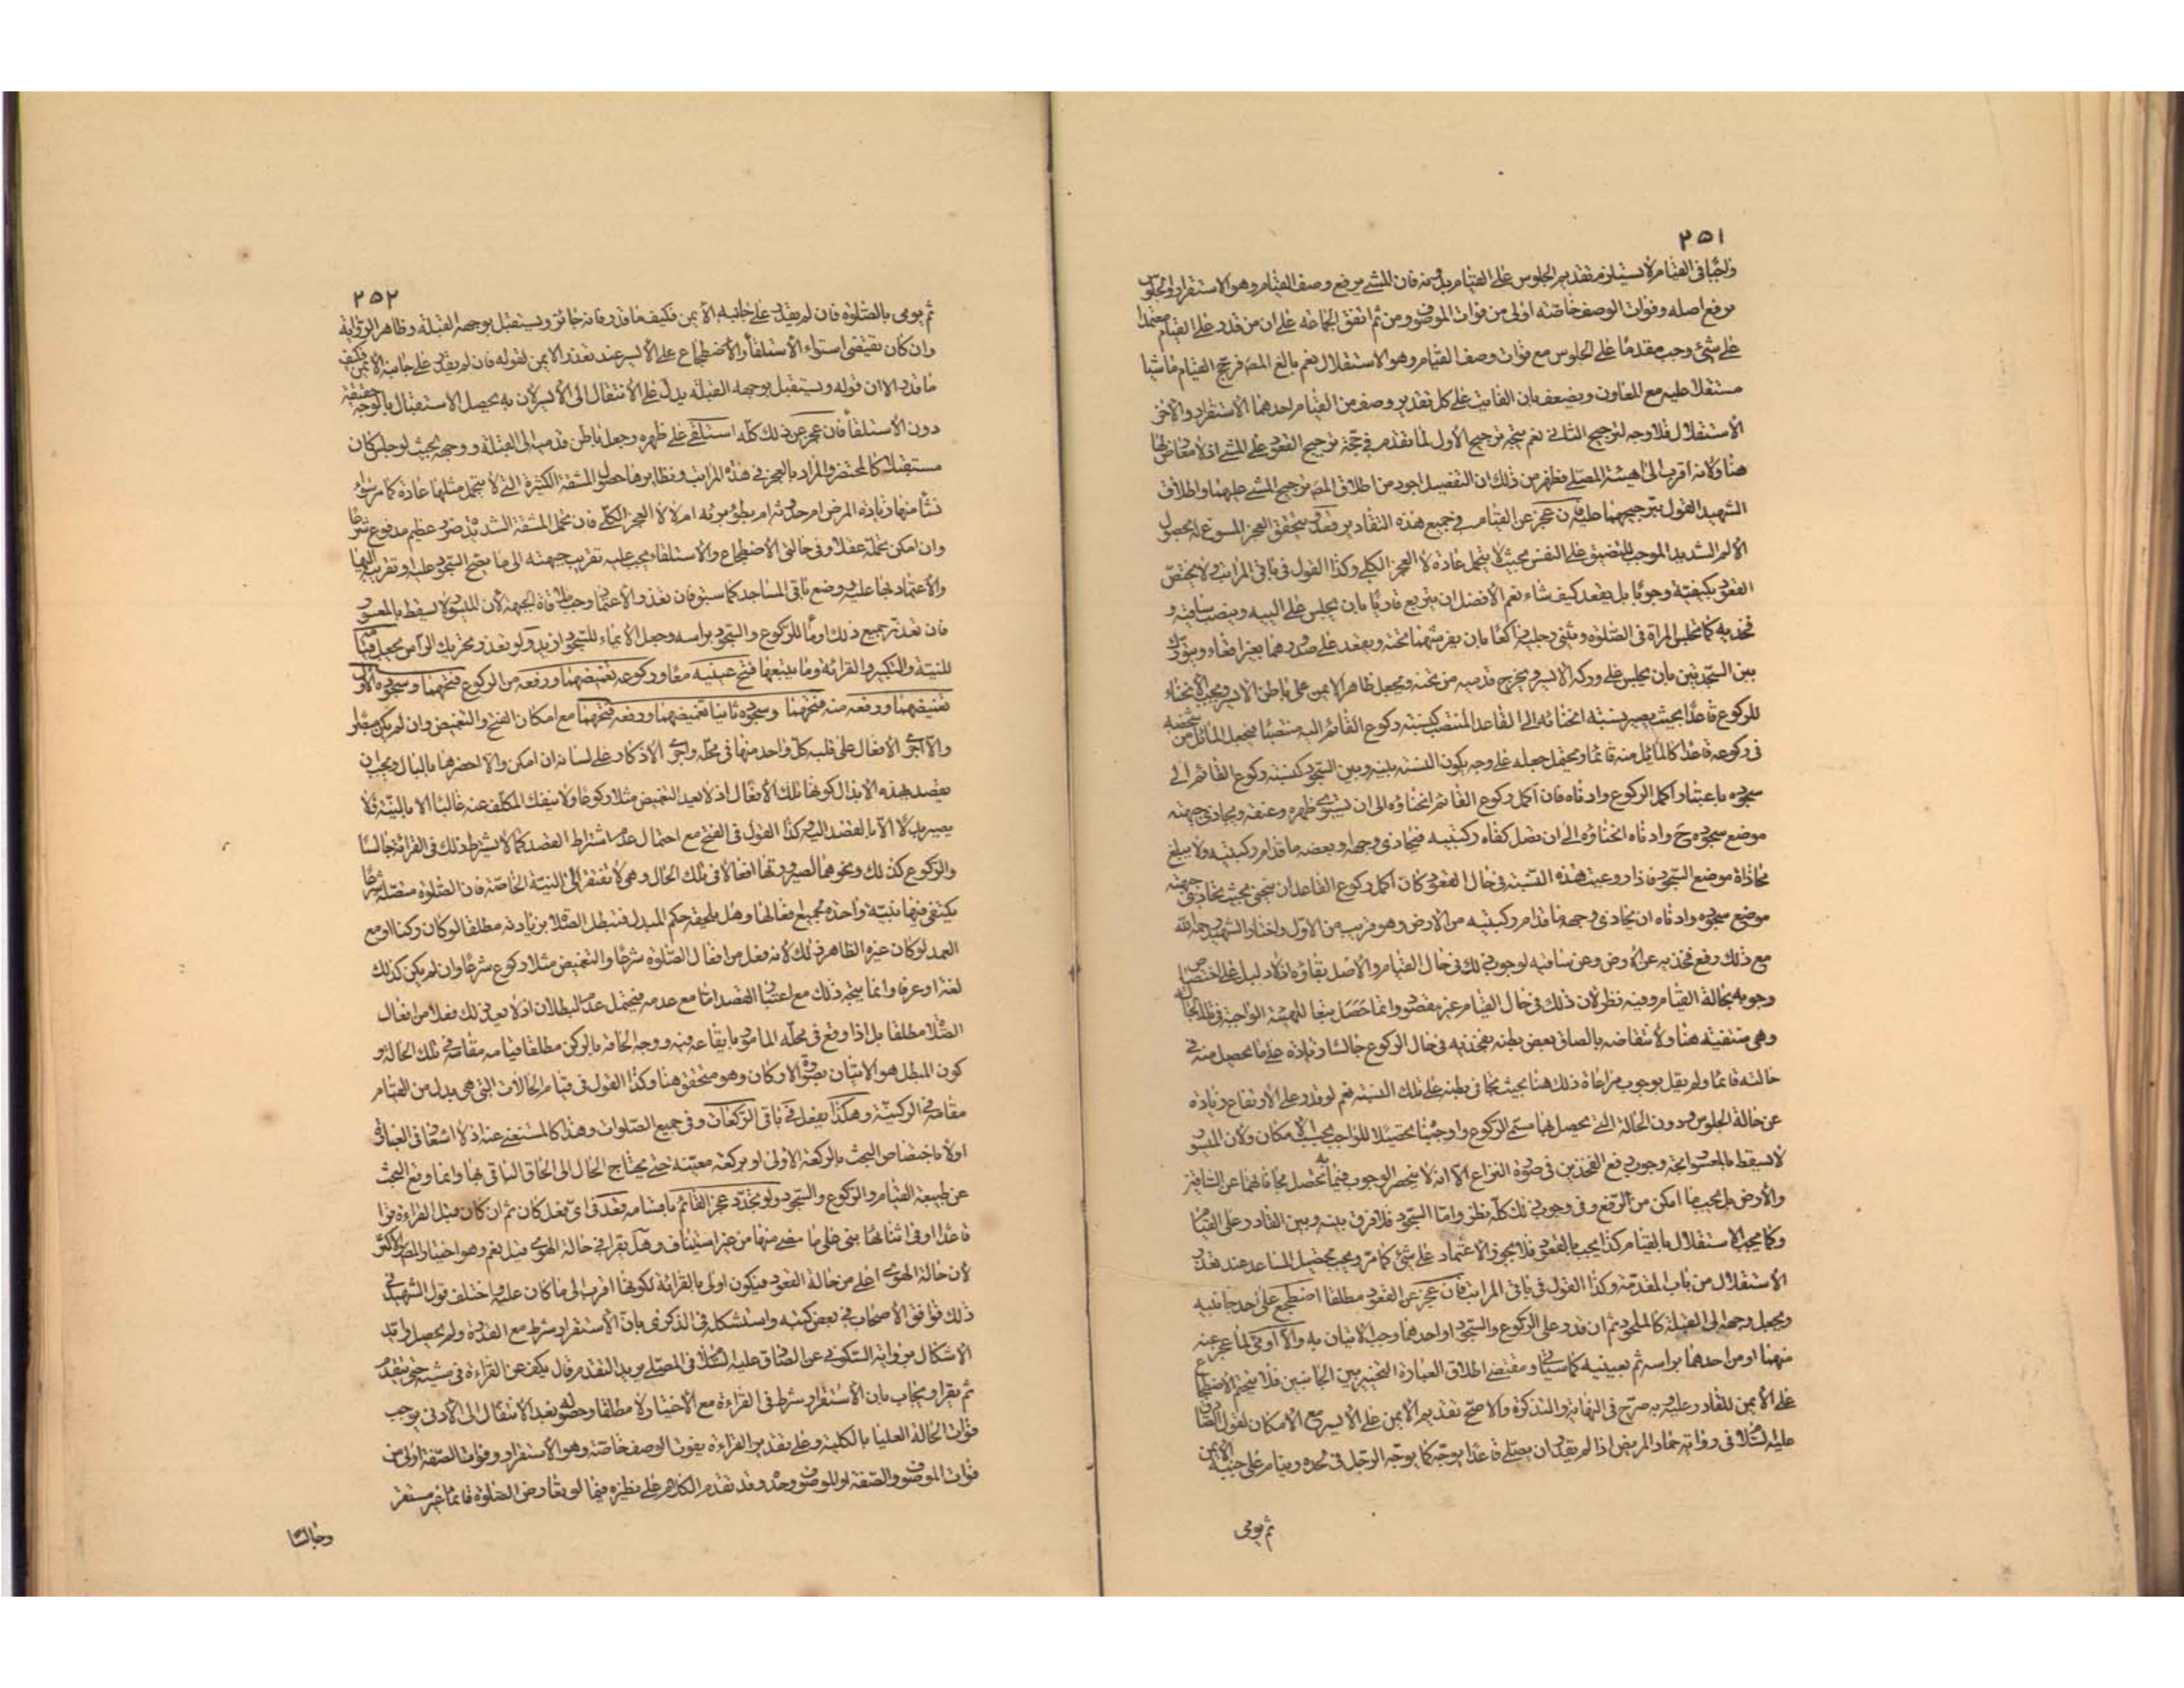 ٢٥١
واجبا في القيام لا يستلزم تقديم الجلوس على القيام بدونه فان المشي يرفع وصف القيام وهو الاستقرار والجلوس
يرفع اصله وفوات الوصف خاصته اولى من فوات الموصوف ومن ثم اتفق الجماعة على ان من قدر على القيام معتمدا
على شئ وجب مقدما على الجلوس مع فوات وصف القيام وهو الاستقلال نعم بالغ المص فرجح القيام ماشيا
مستقلا عليه مع المعاون ويضعف بان الفايت على كل تقدير وصف من القيام احدهما الاستقرار والاخر
الاستقلال فلا وجه لترجيح الثاني نعم يتجه ترجيح الاول لما تقدم في حجة ترجيح القعود على المشي اذ لا معارض لها
هنا ولانه اقرب الى هيئة المصلي فظهر من ذلك ان التفصيل اجود من اطلاق المص ترجيح المشي عليهما واطلاق
الشهيد القول بترجيحهما عليه فان عجز عن القيام في جميع هذه التقادير قعد ويتحقق العجز المسوغ له بحصول
الالم الشديد الموجب للتضييق على النفس بحيث لا يتحمل عادة لا العجز الكلي وكذا القول في باقي المراتب ولا يختص
القعود بكيفية وجوبا بل يقعد كيف شاء نعم الافضل ان يتربع قاريا بان يجلس على اليبه وينصب ساقيه و
فخذيه كما تجلس المراة في الصلوة ويثني رجليه راكعا بان يفرشهما تحته ويقعد على صدورهما بغير اقعاء ويتورك
بين السجدتين بان يجلس على وركه الايسر ويخرج قدميه من تحته ويجعل ظاهر الايمن على باطن الايسر ويجب الانحناء
للركوع قاعدا بحيث يصير بنسبة انحنائه الى القاعد المنتصب كنسبة ركوع القائم اليه منتصبا فيجعل المائل من شخصه
في ركوعه قاعدا كالمائل منه قائما ويحتمل جعله على وجه يكون النسبة بينه وبين السجود كنسبة ركوع القائم الى
سجوده باعتبار اكمل الركوع وادناه فان اكمل ركوع القائم انحناؤه الى ان يستوي ظهره وعنقه ويحاذي جبهته
موضع سجوده ح وادناه انحناؤه الى ان تصل كفاه ركبتيه فيحاذي وجهه او بعضه ما قدام ركبتيه ولا يبلغ
محاذاة موضع السجود فاذا روعيت هذه النسبة في حال القعود كان اكمل ركوع القاعد ان ينحني بحيث يحاذي جبهته
موضع سجوده وادناه ان يحاذي وجهه ما قدام ركبتيه من الارض وهو قريب من الاول واختار الشهيد رحمه الله
مع ذلك رفع فخذيه عن الارض وعن ساقيه لوجوب ذلك في حال القيام والاصل بقاؤه اذ لا دليل على اختصاص
وجوبه بحالة القيام وفيه نظر لان ذلك في حال القيام غير مقصود وانما حصل تبعا للهيئة الواجبة في تلك الحالة
وهي منتفية هنا ولانتقاضه بالصاق بعض بطنه بفخذيه في حال الركوع جالسا وزيادة على ما يحصل منه في
حالته قائما ولم يقل بوجوب مراعاة ذلك هنا بحيث يجافي بطنه على تلك النسبة نعم لو قدر على الارتفاع زيادة
عن حالة الجلوس دون الحالة التي يحصل بها مسمى الركوع واوجبنا تحصيلا للواجب بحسب الامكان ولان الميسور
لا يسقط بالمعسور اتجه وجوب رفع الفخذين في صورة النزاع الا انه لا ينحصر الوجوب فيما تحصل به مجافاتهما عن الساقين
والارض بل يجب ما امكن من الرفع وفي وجوب ذلك كله نظر واما السجود فلا فرق بينه وبين القادر على القيام
وكما يجب الاستقلال بالقيام كذا يجب بالقعود فلا يجوز الاعتماد على شئ كما مر ويجب تحصيل المساعد عند تعذر
الاستقلال من باب المقدمة وكذا القول في باقي المراتب فان عجز عن القعود مطلقا اضطجع على احد جانبيه
ويجعل وجهه الى القبلة كالملحود ثم ان قدر على الركوع والسجود او احدهما وجب الاتيان به والا اومى لما عجز عنه
منهما او من احدهما براسه ثم بعينيه كما سياتي ومقتضى اطلاق العبارة التخيير بين الجانبين فلا يتحتم الاضطجاع
على الايمن للقادر وعليه وبه صرح في النهاية والتذكرة والاصح تقديم الايمن على الايسر مع الامكان لقول الصادق
عليه السلام في رواية حماد المريض اذا لم يقدر ان يصلي قاعدا يوجه كما يوجه الرجل في لحده وينام على جنبه الايمن
ثم يومى
٢٥٢
ثم يومى بالصلوة فان لم يقدر على جانبه الايمن فكيف ما قدر فانه جائز ويستقبل بوجهه القبلة وظاهر الرواية
وان كان يقتضي استواء الاستلقاء والاضطجاع على الايسر عند تعذر الايمن لقوله فان لم يقدر على جانبه الايمن فكيف
ما قدر الا ان قوله ويستقبل بوجهه القبلة يدل على الانتقال الى الايسر لان به يحصل الاستقبال بالوجه حقيقة
دون الاستلقاء فان عجز عن ذلك كله استلقى على ظهره وجعل باطن قدميه الى القبلة ووجهه بحيث لو جلس كان
مستقبلا كالمحتضر والمراد بالعجز في هذه المراتب ونظايرها حصول المشقة الكثيرة التي لا يتحمل مثلها عادة كما مر سواء
نشا منها زيادة المرض ام حدوثه ام بطؤ برئه ام لا لا العجز الكلي فان تحمل المشقة الشديدة ضرر عظيم مدفوع شرعا
وان امكن تحمله عقلا وفي حالتي الاضطجاع والاستلقاء يجب عليه تقريب جبهته الى ما يصح السجود عليه او تقريبه اليها
والاعتماد بها عليه ووضع باقي المساجد كما سبق فان تعذر الاعتماد وجب ملاقاة الجبهة لان الميسور لا يسقط بالمعسور
فان تعذر جميع ذلك اومأ للركوع والسجود براسه وجعل الايماء للسجود ازيد ولو تعذر تحريك الراس جعل قيامه
للنية والتكبير والقرائة وما يتبعها فتح عينيه معا وركوعه تغميضهما ورفعه من الركوع فتحهما وسجوده الاول
تغميضهما ورفعه منه فتحهما وسجوده ثانيا تغميضهما ورفعه فتحهما مع امكان الفتح والتغميض وان لم يكن مبصرا
والا اجرى الافعال على قلبه كل واحد منها في محله واجرى الاذكار على لسانه ان امكن والا احضرها بالبال ويجب ان
يقصد بهذه الابدال كونها تلك الافعال اذ لا يعد التغميض مثلا ركوعا ولا ينفك المكلف عنه غالبا الا بالنية فلا
يصير بدلا الا بالقصد اليه وكذا القول في الفتح مع احتمال عدم اشتراط القصد كما لا يشترط ذلك في القرائة جالسا
والركوع كذلك ونحوهما لصيرورتها افعالا في تلك الحال وهي لا تفتقر الى النية الخاصة فان الصلوة متصلة شرعا
يكتفى فيها بنية واحدة لجميع افعالها وهل يلحقه حكم المبدل فتبطل الصلاة بزيادته مطلقا لو كان ركنا او مع
العمد لو كان غيره الظاهر ذلك لانه فعل من افعال الصلوة شرعا والتغميض مثلا ركوع شرعا وان لم يكن كذلك
لغة او عرفا وانما يتجه ذلك مع اعتبار القصد اما مع عدمه فيحتمل عدم البطلان اذ لا يعد ذلك فعلا من افعال
الصلاة مطلقا بل اذا وقع في محله المامور بايقاعه فيه ووجه الحاقه بالركن مطلقا قيامه مقامه في تلك الحالة و
كون المبطل هو الاتيان بصورة الاركان وهو متحقق هنا وكذا القول في قيام الحالات التي هي بدل من القيام
مقامه في الركنية وهكذا يفعل في باقي الركعات وفي جميع الصلوات وهذا كالمستغنى عنه اذ لا اشعار في العبارة
اولا باختصاص البحث بالركعة الاولى او بركعة معينة حتى يحتاج الحال الى الحاق الباقي بها وانما وقع البحث
عن طبيعة القيام والركوع والسجود ولو تجدد عجز القائم باقسامه قعد في اي فعل كان ثم ان كان قبل القراءة قرا
قاعدا او في اثنائها بنى على ما مضى منها من غير استيناف وهل يقرا في حالة الهوي قيل نعم وهو اختيار المص والاكثر
لان حالة الهوي اعلى من حالة القعود فيكون اولى بالقرائة لكونها اقرب الى ما كان عليه واختلف قول الشهيد في
ذلك فوافق الاصحاب في بعض كتبه واستشكله في الذكرى بان الاستقرار شرط مع القدرة ولم يحصل وايد
الاشكال برواية السكوني عن الصادق عليه السلام في المصلي يريد التقدم قال يكف عن القراءة في مشيه حتى يتقدم
ثم يقرا ويجاب بان الاستقرار شرط في القراءة مع الاختيار لا مطلقا وحصوله بعد الانتقال الى الادنى يوجب
فوات الحالة العليا بالكلية وعلى تقدير القراءة يفوت الوصف خاصة وهو الاستقرار وفوات الصفة اولى من
فوات الموصوف والصفة او الموصوف وحده وقد تقدم الكلام على نظيره فيما لو تعارض الصلوة قائما غير مستقر
وجالسا